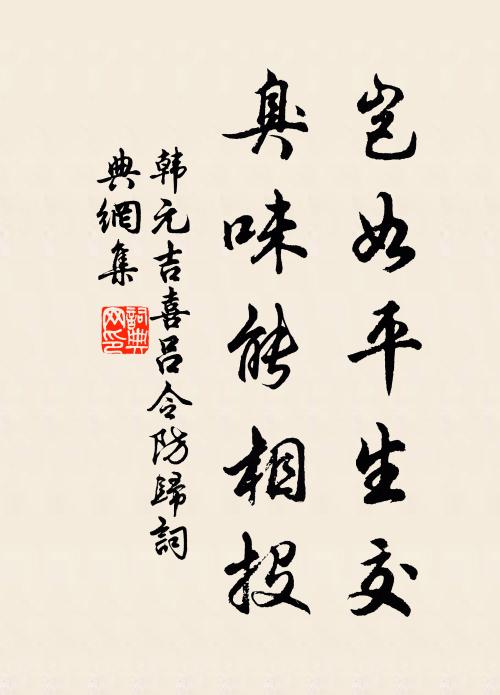 岂如平生交
臭味能相投
韩元吉喜吕令防歸詞
典網集
詞典网印